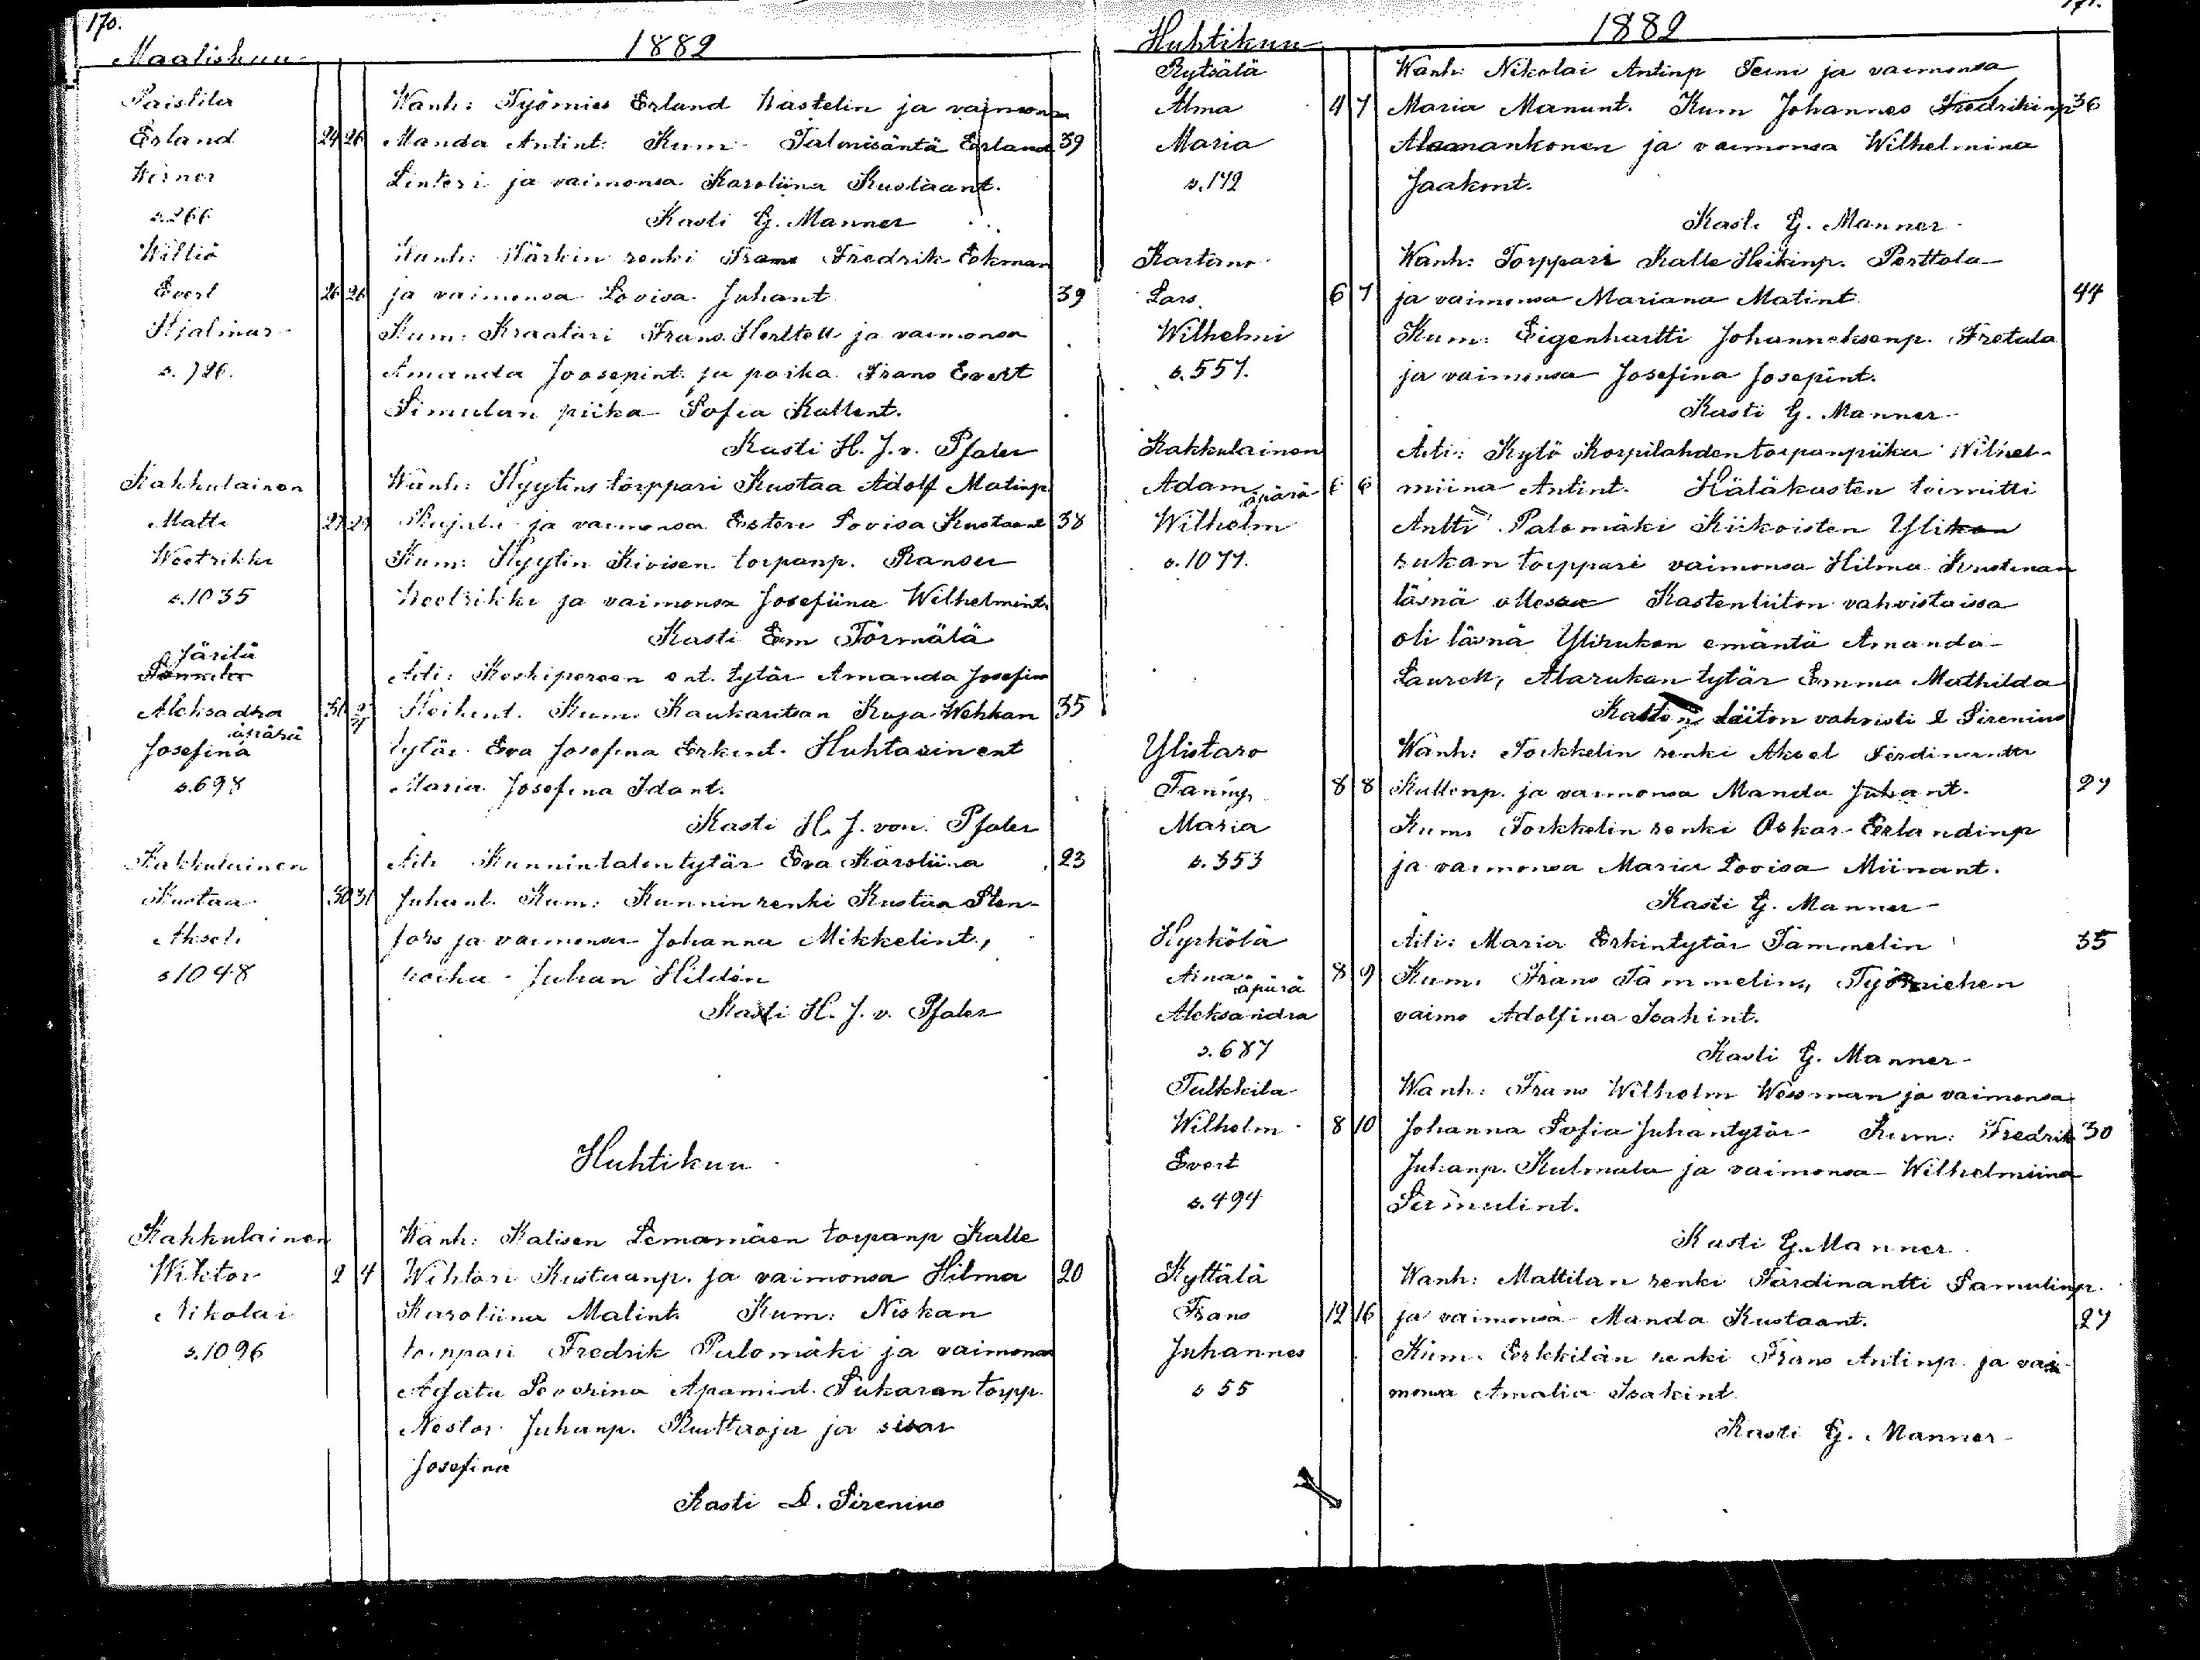 170.
Maaliskuu 1889
Paistila
Erland 24 26
Werner
s. 266
Wanh: Työmies Erland Wastelin ja vaimonsa
Manda Antint. Kum. Talonisäntä Erland 39
Linteri ja vaimonsa Karoliina Kustaant.
Kasti G. Manner
Wiltiö
Evert 26 26
Hjalmar
s. 726.
Wanh: Härkin renki Frans Fredrik Eekman
ja vaimonsa Lovisa Juhant 39
Kum: Kraatari Frans Herttell ja vaimonsa
Amanda Joosepint. ja poika Frans Evert
Simulan piika Sofia Kallent.
Kasti H. J. v. Pfaler
Kakkulainen
Matti 27 29
Weetrikki
s. 1035
Wanh: Hyytins torppari Kustaa Adolf Matinp
ja vaimonsa Esteri Lovisa Kustaant 38
Kum: Hyytin Kivisen torpanp. Ranser
Weetrikki ja vaimonsa Josefiina Wilhelmint.
Kasti Em Törmälä
Järilä
Aleksadra 31
äpärä
Josefina
s. 698
Äiti: Koskipereen ent. tytär Amanda Josefin
Heikint. Kum. Kaukaritsan Kuja-Wehkan 35
tytär Eva Josefina Erkint. Huhtasin ent
Maria Josefina Idant.
Kasti H. J. von Pfaler
Kakkulainen
Kustaa 30 31
Akseli
s 1048
Äiti Kunnintalen tytär Eva Karoliina 23
Juhant. Kum: Kunnin renki Kustaa Sten-
fors ja vaimonsa Johanna Mikkelint.,
poika Juhan Hildén
Kasti H. J. v. Pfaler
Huhtikuu
Kakkulainen
Wiktor 2 4
Nikolai
s. 1096
Wanh: Kalisen Lemamäen torpanp Kalle
Wihtori Kustaanp. ja vaimonsa Hilma 20
Karoliina Matint. Kum: Niskan
torppari Fredrik Palomäki ja vaimonsa
Agata Severina Apamint. Sukaran torpp.
Nestor Juhanp. Ruttaoja ja sisar
Josefina
Kasti D. Sirenius
171.
Huhtikuu 1889
Rytsälä
Alma 4 7
Maria
s. 172
Wanh: Nikolai Antinp Temi ja vaimonsa
Maria Manunt. Kum Johannes Fredrikinp 36
Alaanankonen ja vaimonsa Wilhelmina
Jaakont.
Kast. G. Manner
Kartimo
Lars 6 7
Wilhelmi
s. 557.
Wanh: Torppari Kalle Heikinp. Perttola
ja vaimonsa Mariana Matint 44
Kum: Eigenhartti Johanneksenp. Fretala
ja vaimonsa Josefina Josepint.
Kasti G. Manner
Kakkulainen
Adam äpärä 6 6
Wilhelm
s. 1077.
Äiti: Kytö Korpilahden torpanpiika Wilhel-
miina Antint. Hätäkasten toimitti
Antti Palomäki Kiikoisten Ylikan
rukan torppari vaimonsa Hilma Kustaan
läsnä ollessa Kastenliiton vahvistaissa
oli läsnä Ylirukan emäntä Amanda
Laurell, Alarukan tytär Emma Mathilda
Kasten liiton vahvisti D Sirenius
Ylistaro
Fanny 8 8
Maria
s. 353
Wanh: Torkkelin renki Aksel Ferdinantti
Kallenp. ja vaimonsa Manda Juhant. 29
Kum. Torkkelin renki Oskar Erlandinp
ja vaimonsa Maria Lovisa Miinant.
Kasti G. Manner
Hyrkölä
Aina äpärä 8 9
Aleksandra
s. 687
Äiti: Maria Erkintytär Tammelin 35
Kum. Frans Tammelins, Työmiehen
vaimo Adolfina Isakint.
Kasti G. Manner
Tulkkila
Wilhelm 8 10
Evert
s. 494
Wanh: Frans Wilhelm Wessman ja vaimonsa
Johanna Sofia Juhantytär Kum: Fredrik 30
Juhanp. Kulmala ja vaimonsa Wilhelmiina
Sermulint.
Kasti G. Manner
Kyttälä
Frans 12 16
Juhannes
s 55
Wanh: Mattilan renki Färdinantti Samulinp.
ja vaimonsa Manda Kustaant. 27
Kum. Eerkkilän renki Frans Antinp. ja vai
monsa Amalia Isakint
Kasti G. Manner